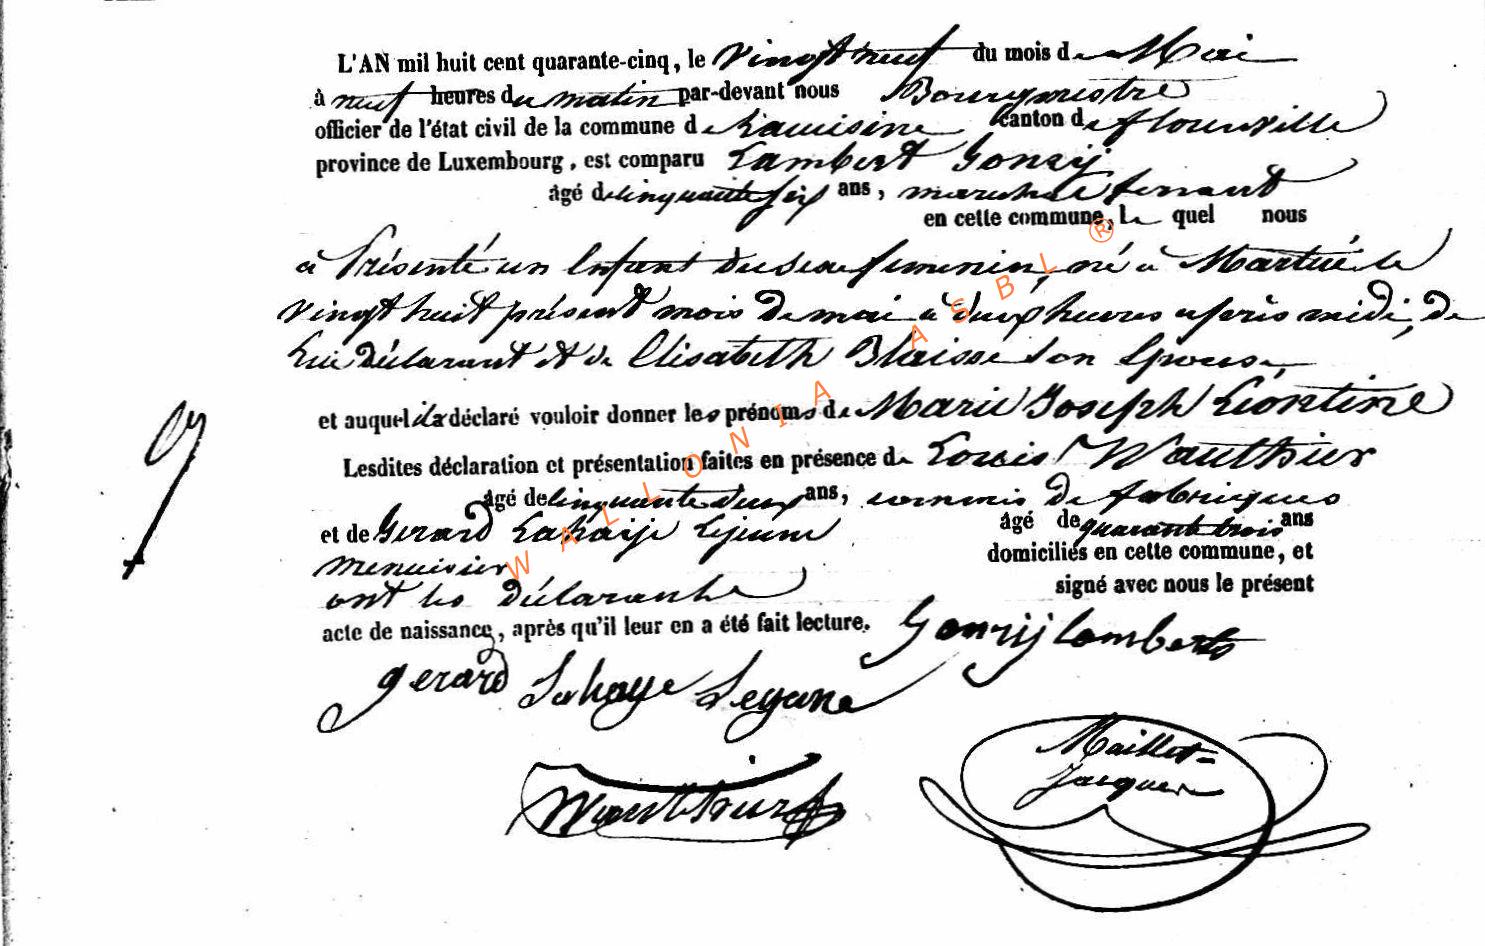 L'AN mil huit cent quarante-cinq, le vingt neuf du mois de Mai
à neuf heures du matin par-devant nous Bourgmestre
officier de l'état civil de la commune de Lacuisine Canton de florenville
province de Luxembourg, est comparu Lambert Gonry
âgé de cinquante six ans, marechal ferrant
en cette commune, le quel nous
a Présenté un Enfant du sexe feminin, né à Martué le
vingt huit présent mois de mai à deux heures après midi, de
Lui Déclarant et de Elisabeth Blaisse son Epouse
et auquel il a déclaré vouloir donner les prénoms de Marie Joseph Léontine
Lesdites déclaration et présentation faites en présence de Louis Wauthier
âgé de cinquante deux ans, commis de fabriques
et de Gerard Lahaije Lejeune âgé de quarante trois ans
menuisier domiciliés en cette commune, et
ont les déclarants signé avec nous le présent
acte de naissance, après qu'il leur en a été fait lecture.
Gonrij lambert
gerard Lahaye Legune
Wauthier
Maillet-
Jacques
9
WALLONIA ASBL ®